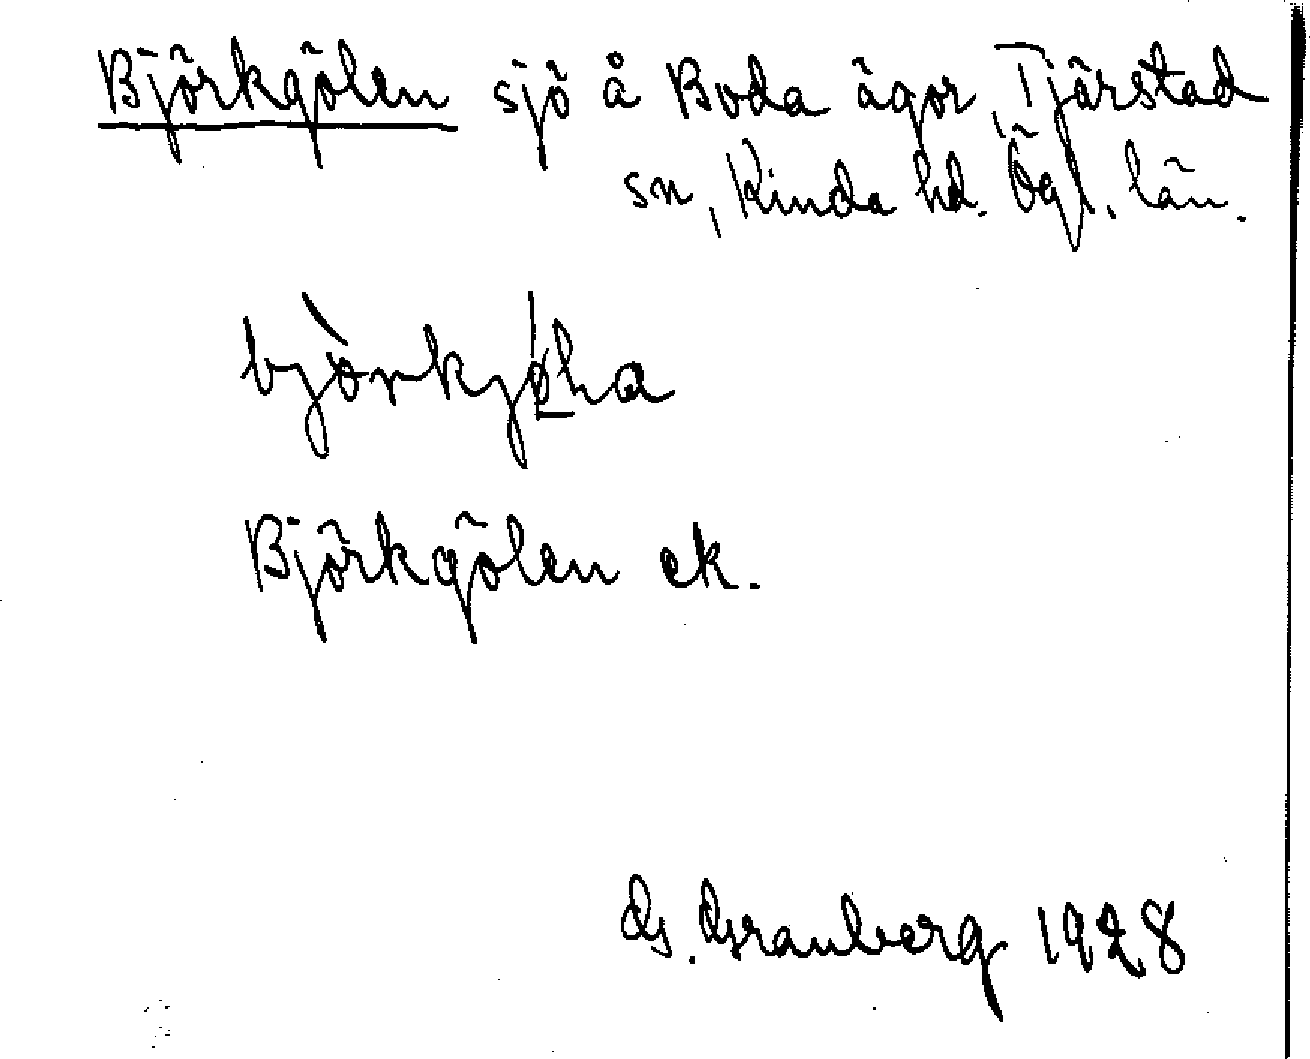 Björkgölen sjö å Boda ägor, Tjärstad
sn, Kinda hd. Ögl. län.
Björkgölen ek.
G. Granberg 1928